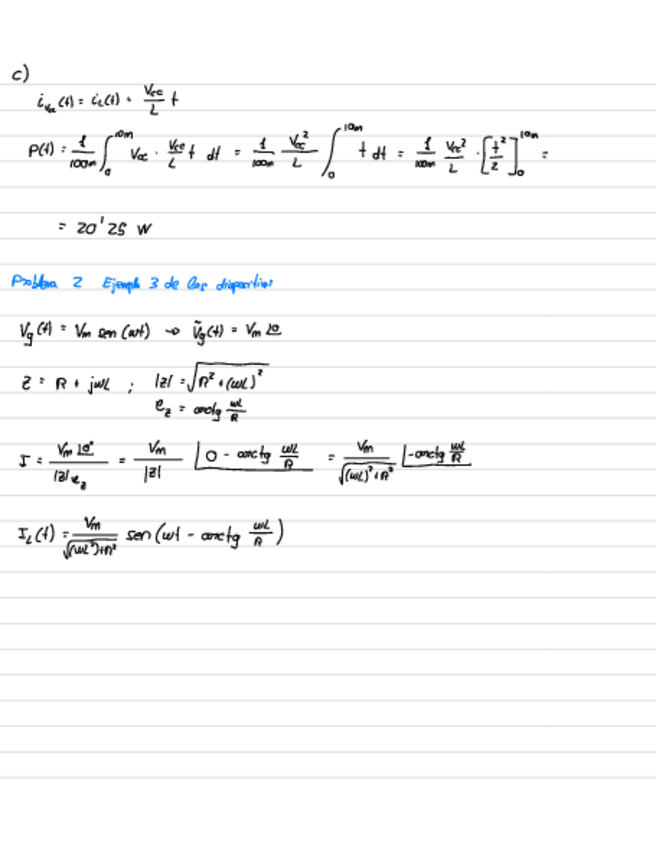 c)
i_Vcc (t) = i_L(t) = Vcc/L t
P(t) = 1/100m ∫_0^10m Vcc · Vcc/L t dt = 1/100m Vcc²/L ∫_0^10m t dt = 1/100m Vcc²/L · [t²/2]_0^10m =
= 20'25 W
Problema 2 Ejemplo 3 de las diapositivas
Vg (t) = Vm sen (wt) → Ṽg(t) = Vm ∠0
Z = R + jwL ; |Z| = √(R² + (wL)²)
φ_Z = arctg wL/R
I = Vm ∠0° / |Z| φ_Z = Vm/|Z| ∠0 - arctg wL/R = Vm/√((wL)² + R²) ∠-arctg wL/R
I_L (t) = Vm/√((wL²)+R²) sen (wt - arctg wL/R)